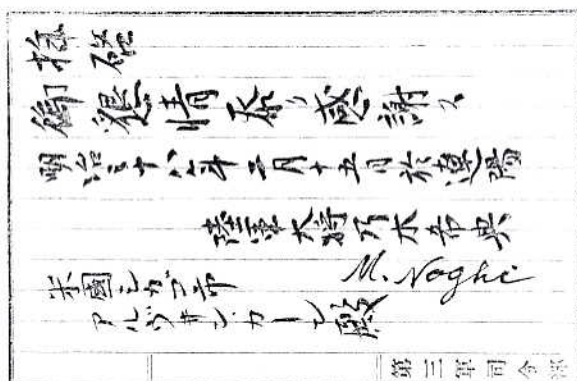 拝啓
御懇情忝ク感謝ス
明治三十八年二月十五日於遼陽
陸軍大将乃木希典
M. Noghi
米國シカゴ市
殿
第三軍司令部